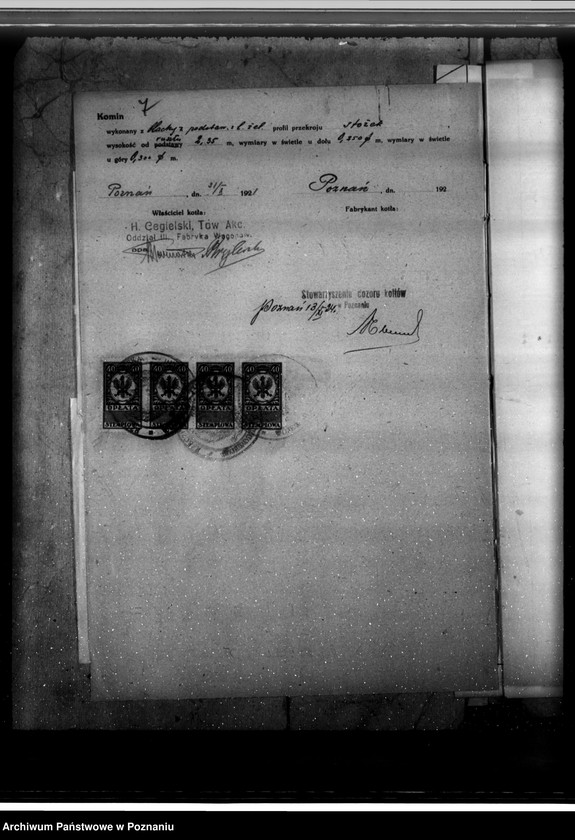 7
Komin
wykonany z blachy z podstaw. i l. żel. profil przekroju stożek,
rusztu
wysokość od podstawy 2,35 m, wymiary w świetle u dołu 0,350 ϕ m, wymiary w świetle
u góry 0,300 ϕ m.
Poznań, dn. 31/5 1921 Poznań, dn. 192
Właściciel kotła: Fabrykant kotła:
H. Cegielski, Tow Akc.
Oddział III. Fabryka Wagonów.
Stowarzyszenie dozoru kotłów
w Poznaniu
Poznań 13
40 40 40 40 40 40 40 40
OPŁATA OPŁATA OPŁATA OPŁATA
STEMPLOWA STEMPLOWA STEMPLOWA STEMPLOWA
Archiwum Państwowe w Poznaniu